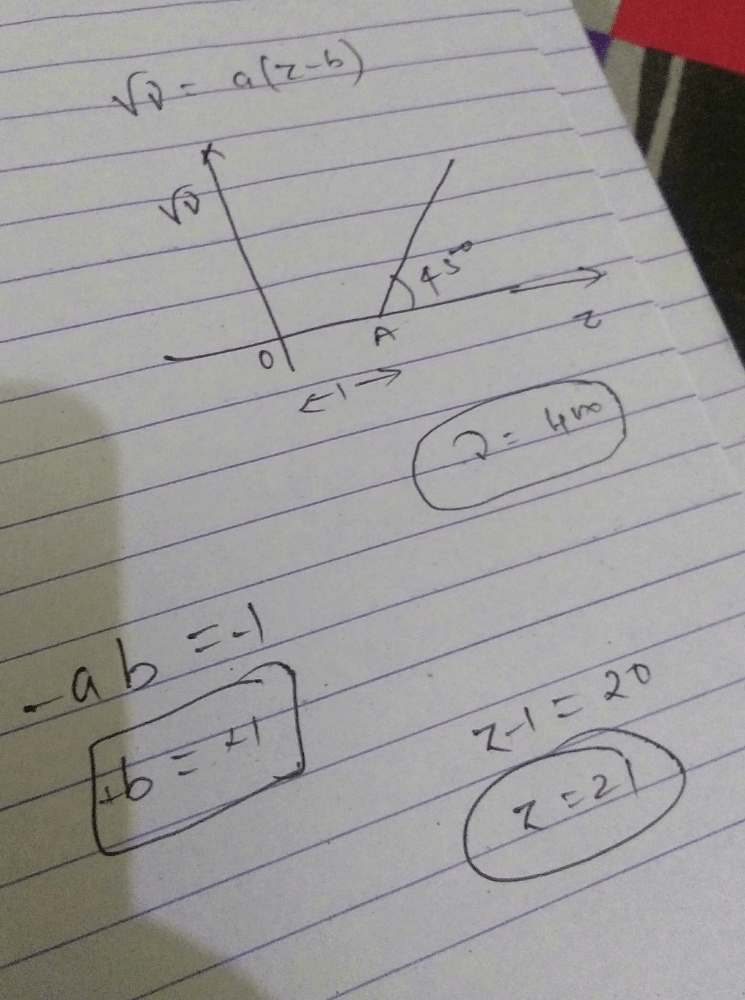 √ν = a(z-b)
√ν
45°
A
z
O
← 1 →
ν = 400
-ab = -1
+b = +1
z-1 = 20
z = 21